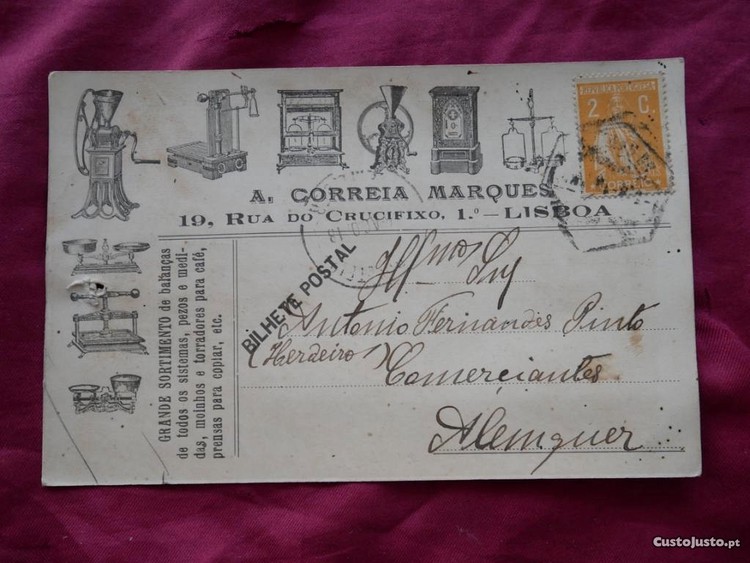 REPUBLICA PORTUGUESA
2 C.
A. CORREIA MARQUES
19, RUA DO CRUCIFIXO, 1.º – LISBOA
BILHETE POSTAL
GRANDE SORTIMENTO de balanças
de todos os sistemas, pezos e medi-
das, moinhos e torradores para café,
prensas para copiar, etc.
Illmos Snrs
Antonio Fernandes Pinto
(Herdeiro) Comerciantes
Alemquer
CustoJusto.pt